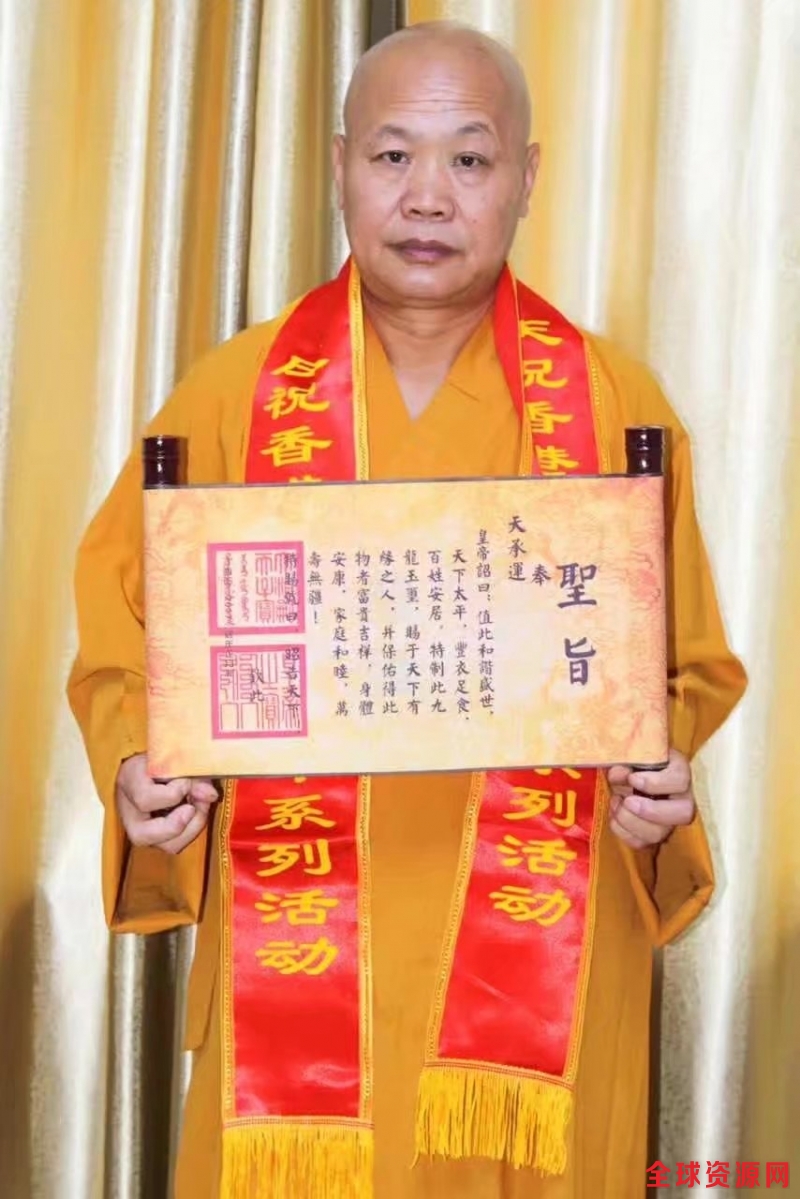 聖旨
奉
天承運
皇帝詔曰：值此和諧盛世，
天下太平，豐衣足食，
百姓安居，特制此九
龍玉璽，賜于天下有
緣之人，并保佑得此
物者富貴吉祥，身體
安康，家庭和睦，萬
壽無疆！
特賜號曰 昭告天下
欽此
祝香
系列活动
祝香
列活动
全球资源网